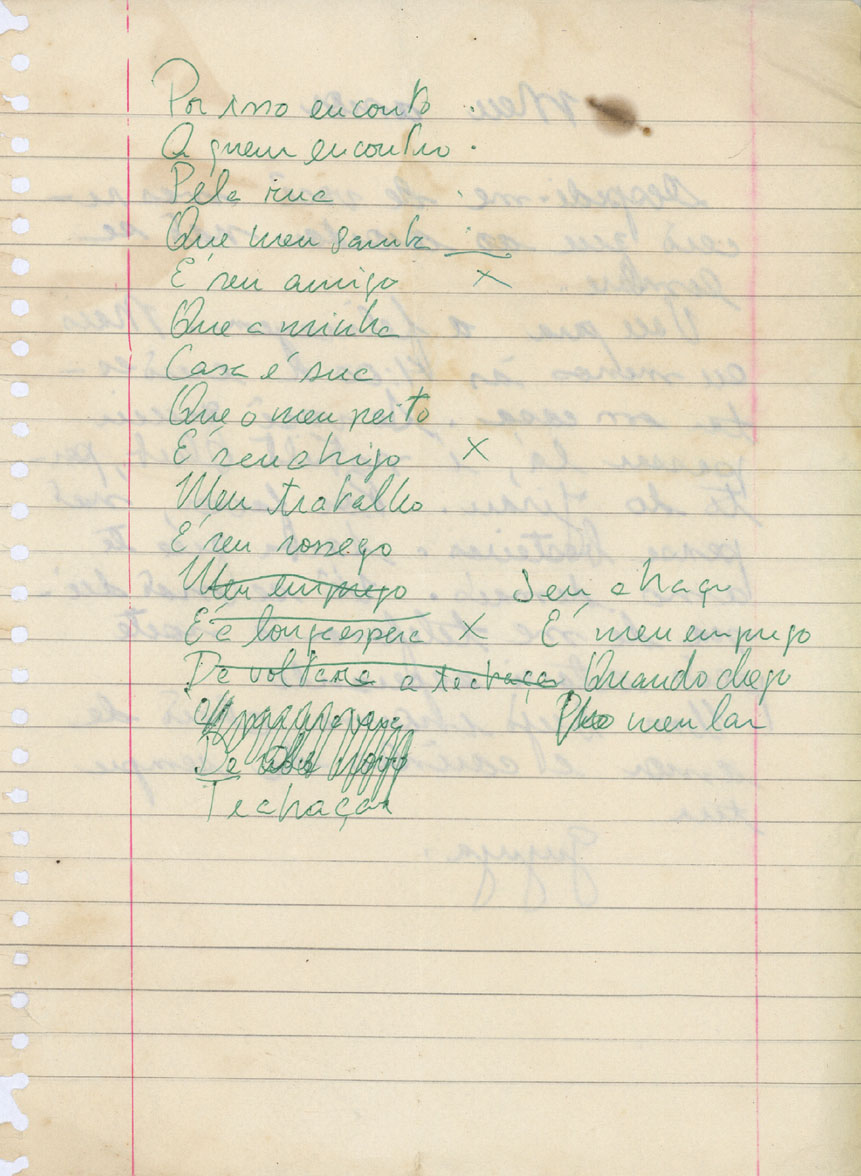 Por isso eu conto
A quem encontro
Pela rua
Que meu samba
É seu amigo
Que a minha
Casa é sua
Que o meu peito
É seu abrigo
Meu trabalho
É seu sossego
Meu emprego Seu abraço
É a longa espera É meu emprego
De voltar Quando chego
meu lar
De novo
Te abraçar